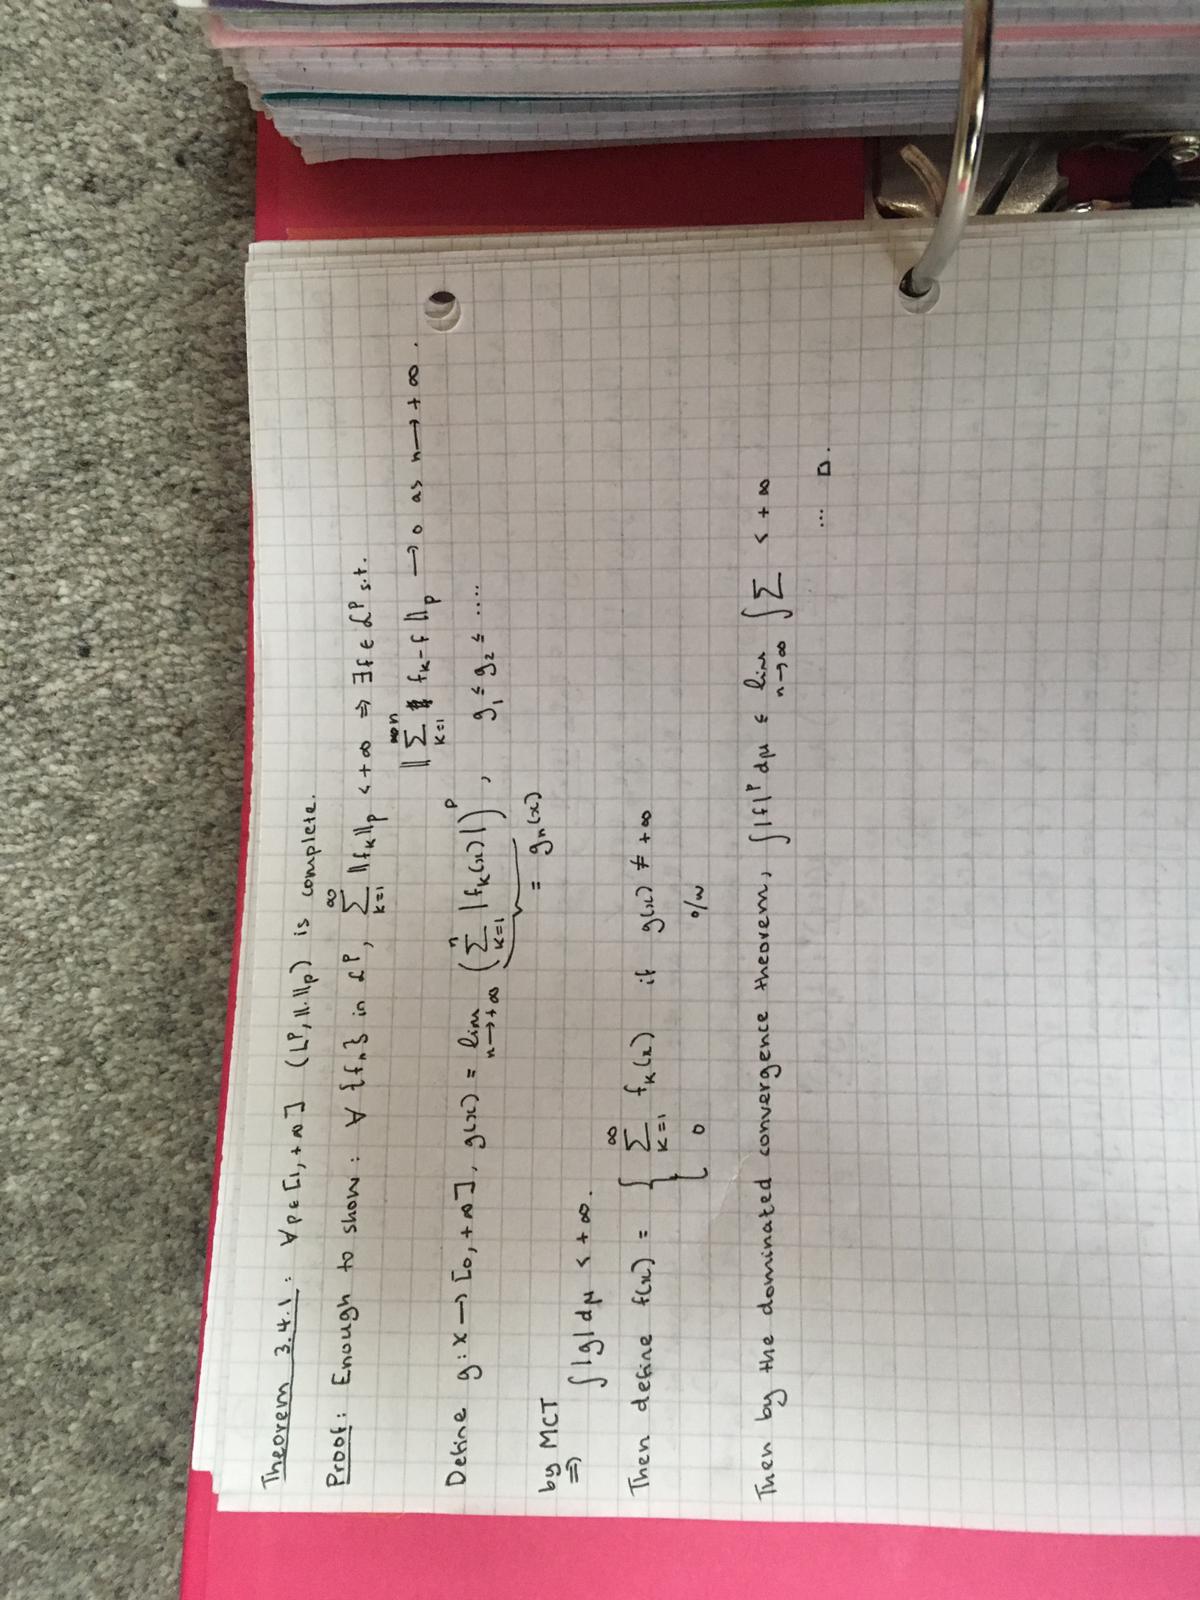 Theorem 3.4.1: ∀p∈[1,+∞] (Lᵖ, ||.||ₚ) is complete.
Proof: Enough to show: ∀ {fₙ} in ℒᵖ, ∑_{k=1}^{∞} ||fₖ||ₚ < +∞ ⇒ ∃f ∈ ℒᵖ s.t.
|| ∑_{k=1}^{n} fₖ - f ||ₚ → 0 as n → +∞.
Define g: X → [0,+∞], g(x) = lim_{n→+∞} (∑_{k=1}^{n} |fₖ(x)|)ᵖ, g₁ ≤ g₂ ≤ ....
= gₙ(x)
by MCT
⇒ ∫|g|dμ < +∞.
Then define f(x) = { ∑_{k=1}^{∞} fₖ(x) if g(x) ≠ +∞
0 o/w
Then by the dominated convergence theorem, ∫|f|ᵖ dμ ≤ lim_{n→∞} ∫∑ < +∞
... □.